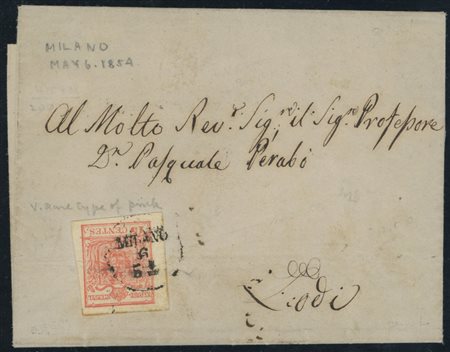 MILANO
MAY 6. 1854
Al Molto Rev.r Sig.re il Sig.r Profeßore
D.n Pasquale Perabò
v. rare type of pink
CENTES.
MILANO
6
Lodi